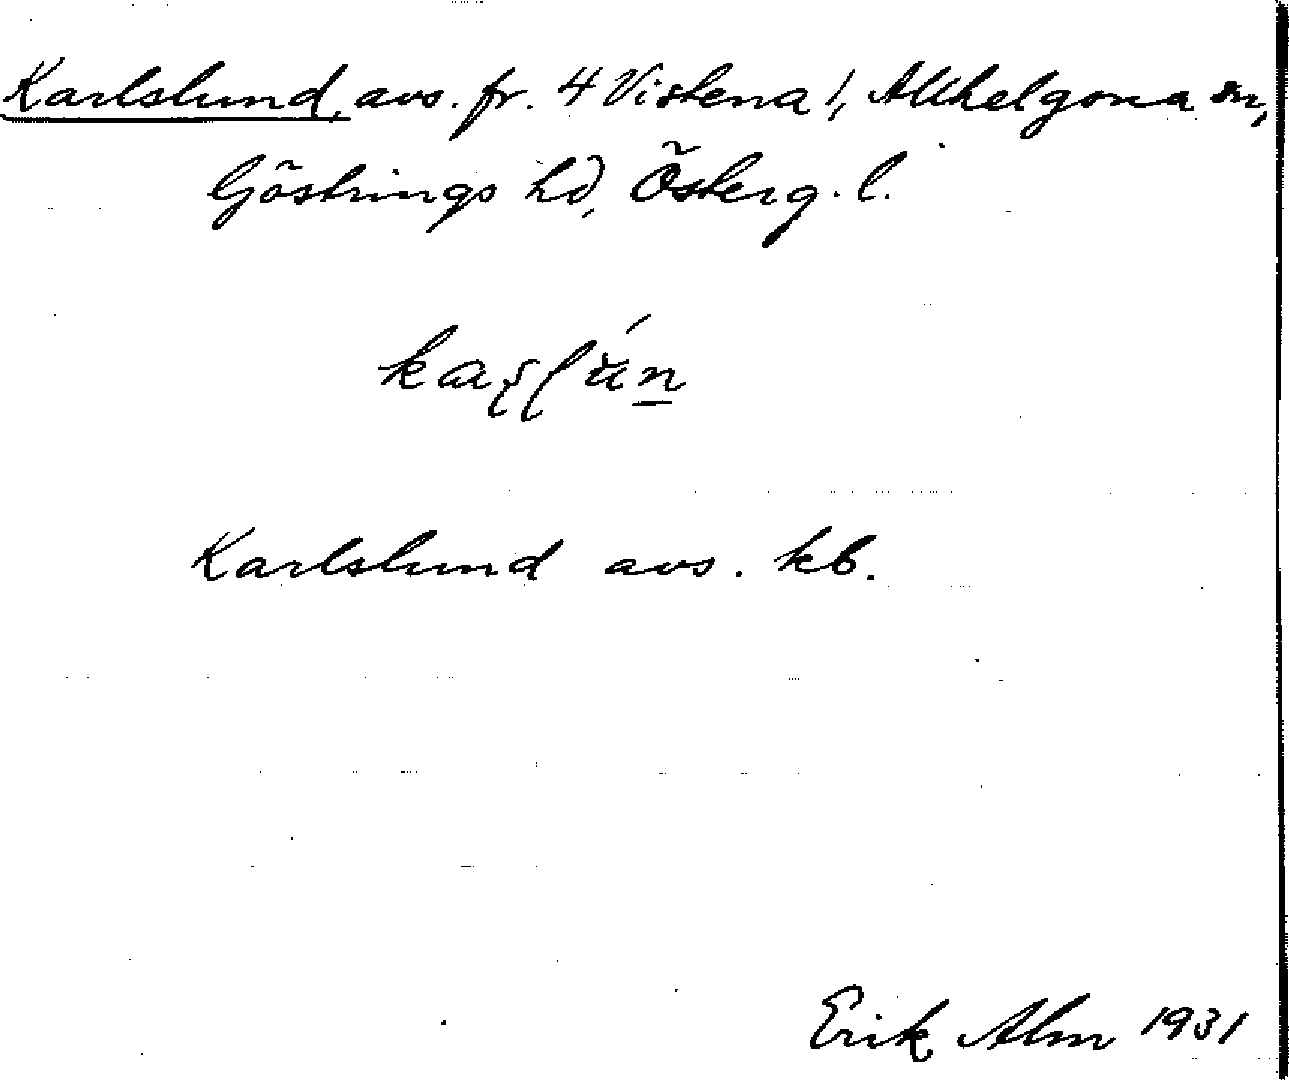 Karlslund, avs. fr. 4 Vistena !, Allhelgona sn,
Göstrings hd, Österg. l.
Karlslund avs. kb.
Erik Alm 1931